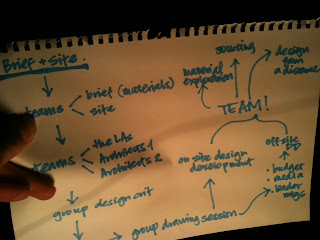 Brief + Site.
teams
brief (materials)
site
teams
the LAs
Architects 1
Architects 2
group design crit
group drawing session
on site design
development
TEAM!
material
exploration
sourcing
design
from
a distance
offsite
• budget
• media
• leader
mtgs